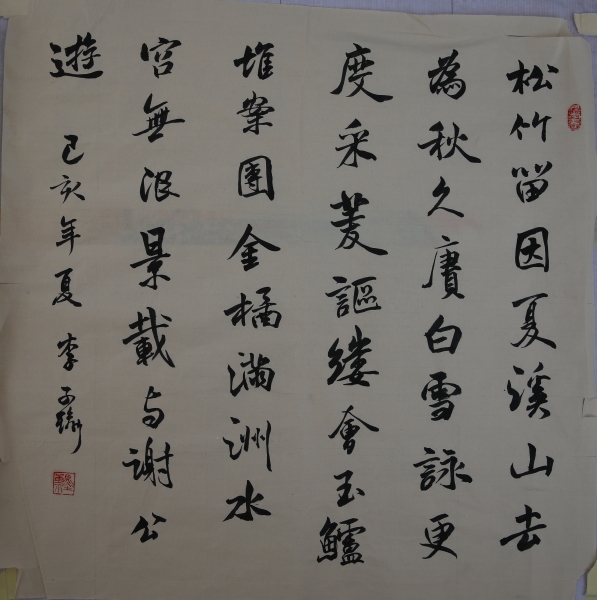 松竹留因夏溪山去
為秋久賡白雪詠更
度采菱謳縷會玉鱸
堆案團金橘滿洲水
宮無限景載与謝公
遊 己亥年夏 李